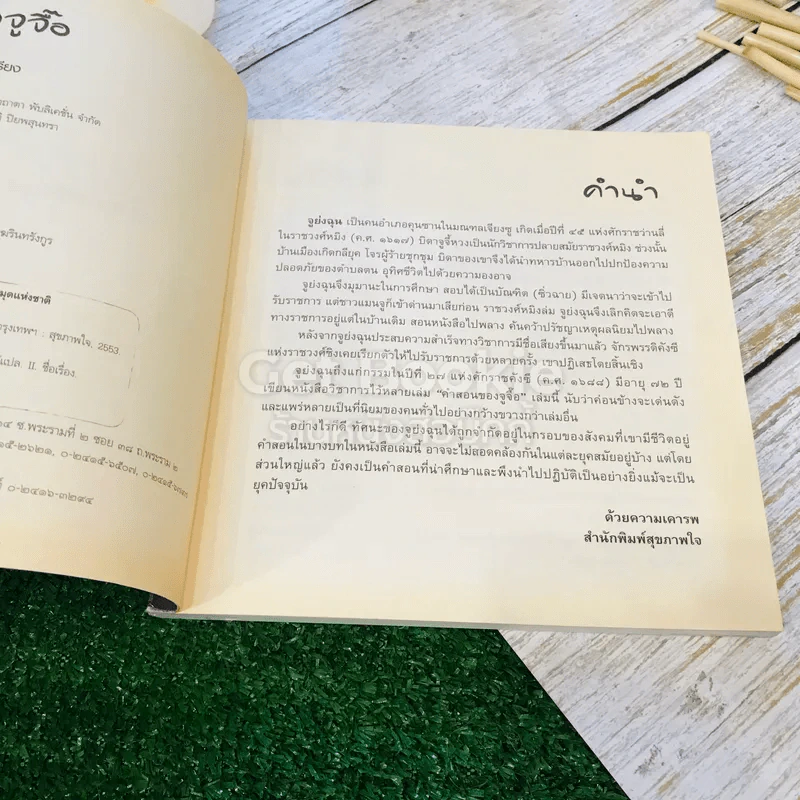 จูจื๊อ
เรียง
ถาดา พับลิเคชั่น จำกัด
ปิยพสุนทรา
ฆรินทรังกูร
มุดแห่งชาติ
กรุงเทพฯ : สุขภาพใจ, 2553.
แปล. II. ชื่อเรื่อง.
ซ.พระรามที่ ๒ ซอย ๓๘ ถ.พระราม ๒
๑๕-๒๖๒๑, ๐-๒๔๑๕-๖๕๐๗,
๐-๒๔๑๖-๓๒๙๔
คำนำ
จูย่งฉุน เป็นคนอำเภอคุนซานในมณฑลเจียงซู เกิดเมื่อปีที่ ๔๕ แห่งศักราชว่านลี่
ในราชวงศ์หมิง (ค.ศ. ๑๖๑๗) บิดาจูจี้หวงเป็นนักวิชาการปลายสมัยราชวงศ์หมิง ช่วงนั้น
บ้านเมืองเกิดกลียุค โจรผู้ร้ายชุกชุม บิดาของเขาจึงได้นำทหารบ้านออกไปปกป้องความ
ปลอดภัยของตำบลตน อุทิศชีวิตไปด้วยความองอาจ
จูย่งฉุนจึงมุมานะในการศึกษา สอบได้เป็นบัณฑิต (ซิ่วฉาย) มีเจตนาว่าจะเข้าไป
รับราชการ แต่ชาวแมนจูก็เข้าด่านมาเสียก่อน ราชวงศ์หมิงล่ม จูย่งฉุนจึงเลิกคิดจะเอาดี
ทางราชการอยู่แต่ในบ้านเดิม สอนหนังสือไปพลาง ค้นคว้าปรัชญาเหตุผลนิยมไปพลาง
หลังจากจูย่งฉุนประสบความสำเร็จทางวิชาการมีชื่อเสียงขึ้นมาแล้ว จักรพรรดิคังซี
แห่งราชวงศ์ชิงเคยเรียกตัวให้ไปรับราชการด้วยหลายครั้ง เขาปฏิเสธโดยสิ้นเชิง
จูย่งฉุนถึงแก่กรรมในปีที่ ๒๗ แห่งศักราชคังซี (ค.ศ. ๑๖๘๘) มีอายุ ๗๒ ปี
เขียนหนังสือวิชาการไว้หลายเล่ม "คำสอนของจูจื๊อ" เล่มนี้ นับว่าค่อนข้างจะเด่นดัง
และแพร่หลายเป็นที่นิยมของคนทั่วไปอย่างกว้างขวางกว่าเล่มอื่น
อย่างไรก็ดี ทัศนะของจูย่งฉุนได้ถูกจำกัดอยู่ในกรอบของสังคมที่เขามีชีวิตอยู่
คำสอนในบางบทในหนังสือเล่มนี้ อาจจะไม่สอดคล้องกันในแต่ละยุคสมัยอยู่บ้าง แต่โดย
ส่วนใหญ่แล้ว ยังคงเป็นคำสอนที่น่าศึกษาและพึงนำไปปฏิบัติเป็นอย่างยิ่งแม้จะเป็น
ยุคปัจจุบัน
ด้วยความเคารพ
สำนักพิมพ์สุขภาพใจ
Get Bookie